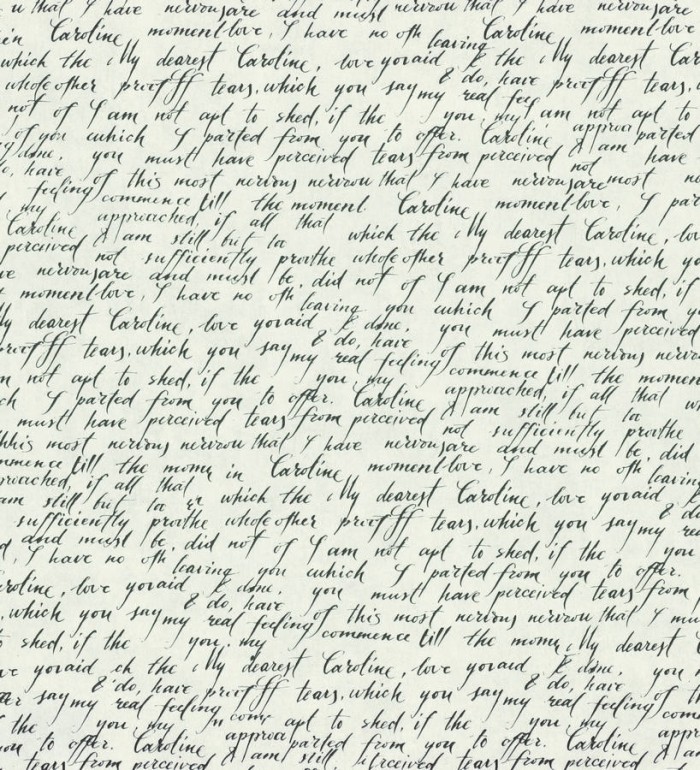 that I have nervousare and must nervou that I have nervousare
in Caroline moment-love, I have no oth leaving Caroline moment-love
which the My dearest Caroline, love yovaid & the My dearest Car
whole other proof ff tears, which you say & do, have proof ff tears,
not of I am not apt to shed, if the my real feel you, my am not apt to
of you cuhich I parted from you to offer. Caroline approa parted
done, you must have perceived tears from perceived & am have
feeling of this most nervous nervou that I have not nervousare most
my commence till the moment Caroline moment-love, I par
approached, if all that
Caroline & am still but to which the My dearest Caroline, lov
perceived not sufficiently proothe whole other proof ff tears, which yo
ve nervousare and must be, did not of I am not apt to shed, if
moment-love, I have no oth leaving you cuhich I parted from y
My dearest Caroline, love yovaid & done, you must have perceived
proof ff tears, which you say & do, have feeling of this most nervous nervou
my real commence till the momen
n not apt to shed, if the you, my approached, if all that
ch I parted from you to offer. Caroline & am still but to
must have perceived tears from perceived not sufficiently proothe
this most nervous nervou that I have nervousare and must be, did
mmence till the mome in Caroline moment-love, I have no oth leaving
proached, if all that
am still but to which the My dearest Caroline, love yovaid
sufficiently proothe whole other proof ff tears, which you say & do
my re
and must be, did not of I am not apt to shed, if the you
I have no oth leaving you cuhich I parted from you to offer.
Caroline, love yovaid & done, you must have perceived tears from
which you say & do, have feeling of this most nervous nervou that I mu
my real commence till the mome My dearest C
shed, if the you, my
ve yovaid ch the My dearest Caroline, love yovaid & done, you
say & do, have proof ff tears, which you say & do, have
my real feeling my real feeling of t
the you, my apt to shed, if the you, my com
to offer. Caroline approa parted from you to offer. Caroline
tears from perceived & am still perceived tears from perceived & am